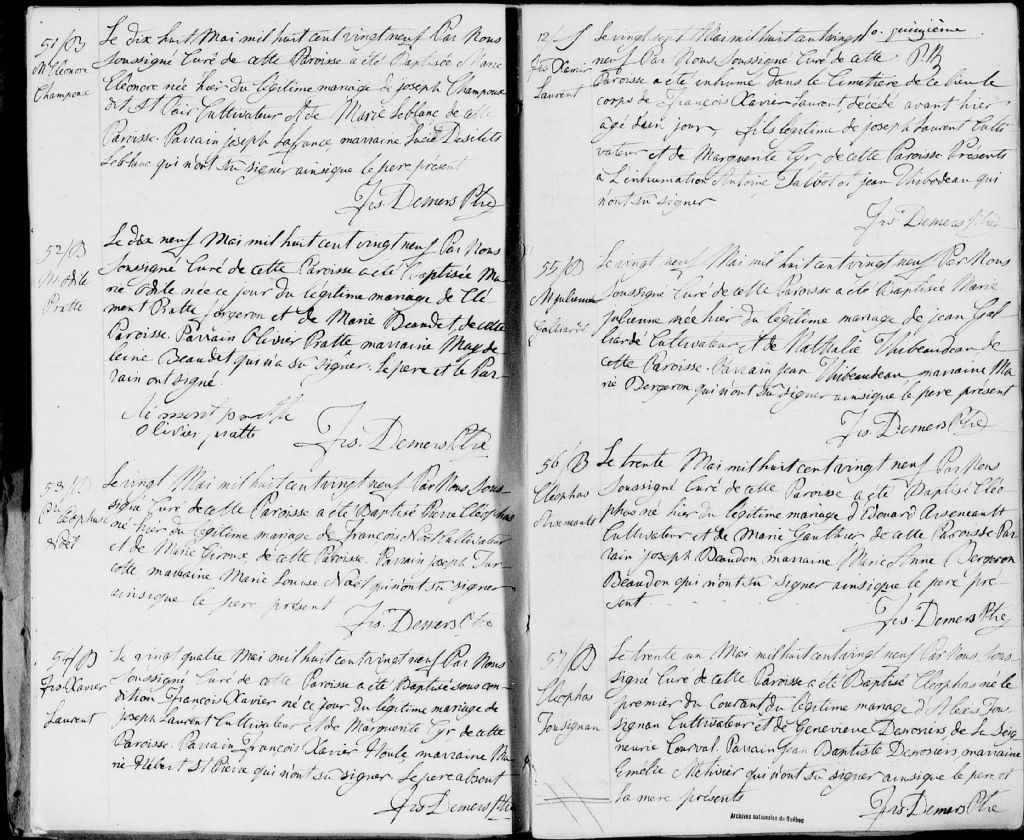 51/B
M. Eleonore
Champoux
Le dix huit Mai mil huit cent vingt neuf Par Nous
Soussigné Curé de cette Paroisse a été Baptisée Marie
Eleonore née hier du légitime mariage de joseph Champoux
dit St Clair Cultivateur et de Marie Leblanc de cette
Paroisse. Parrain joseph Lafrance, marraine Lucie Desilets
Leblanc qui n'ont su signer ainsique le pere présent
Frs Demers Ptre
52/B
M Odile
Pratte
Le dix neuf Mai mil huit cent vingt neuf Par Nous
Soussigné Curé de cette Paroisse a été Baptisée Ma-
rie Odile née ce jour du légitime mariage de Clé
ment Pratte forgeron et de Marie Beaudet, de cette
Paroisse. Parrain Olivier Pratte marraine Magde
leine Beaudet qui n'a su signer. le pere et le Par-
rain ont signé.
Olivier pratte
Frs. Demers Ptre
53/B
Pre Cléophas
Noël
Le vingt Mai mil huit cent vingt neuf Par Nous Sous-
signé Curé de cette Paroisse a été Baptisé Pierre Cléophas
né hier du légitime mariage de François Noël Cultivateur
et de Marie Giroux de cette Paroisse. Parrain joseph Tur-
cotte, marraine Marie Louise Noël qui n'ont su signer
ainsique le pere présent
Frs. Demers Ptre
54/B
Frs Xavier
Laurent
Le vingt quatre Mai mil huit cent vingt neuf Par Nous
Soussigné Curé de cette Paroisse a été Baptisé sous con-
dition François Xavier né ce jour du légitime mariage de
joseph Laurent Cultivateur et de Marguerite Cyr de cette
Paroisse. Parrain François Xavier Houle marraine Ma
rie Hébert St Pierre qui n'ont su signer. Le pere absent
Frs Demers Ptre
fo. quinzième.
P. B
12 S
Frs Xavier
Laurent
Le vingt sept Mai mil huit cent vingt
neuf Par Nous Soussigné Curé de cette
Paroisse a été inhumé dans le Cimetière de ce lieu le
corps de François Xavier Laurent décédé avant hier
agé d'un jour, fils légitime de joseph Laurent Culti
vateur et de Marguerite Cyr de cette Paroisse. Présents
à L'inhumation Antoine Talbot et jean Thibodeau qui
n'ont su signer
Frs Demers Ptre
55/B
M julienne
Galliardé
Le vingt neuf Mai mil huit cent vingt neuf Par Nous
Soussigné Curé de cette Paroisse a été Baptisée Marie
julienne née hier du légitime mariage de jean Gal-
liardé Cultivateur et de Nathalie Thibeaudeau de
cette Paroisse. Parrain jean Thibeaudeau marraine Ma
rie Bergeron qui n'ont su signer ainsique le pere présent
Frs. Demers Ptre
56/B
Cléophas
Arseneault
Le trente Mai mil huit cent vingt neuf Par Nous
Soussigné Curé de cette Paroisse a été Baptisé Cléo
phas né hier du légitime mariage d'Edouard Arseneault
Cultivateur et de Marie Gauthier de cette Paroisse Par
rain joseph Beaudon, marraine Marie Anne Bergeron
Beaudon qui n'ont su signer ainsique le pere pré-
sent.
Frs. Demers Ptre
57/B
Cleophas
Tousignan
Le trente un Mai mil huit cent vingt neuf Par Nous Sous-
signé Curé de cette Paroisse a été Baptisé Cleophas né le
premier du Courant du légitime mariage d'Alexis Tou
signan Cultivateur et de Genevieve Desrosiers, de la Seig-
neurie Courval. Parrain jean Baptiste Desrosiers marraine
Emelie Metivier qui n'ont su signer ainsique le pere et
la mere présents
Frs. Demers Ptre
Archives nationales du Québec